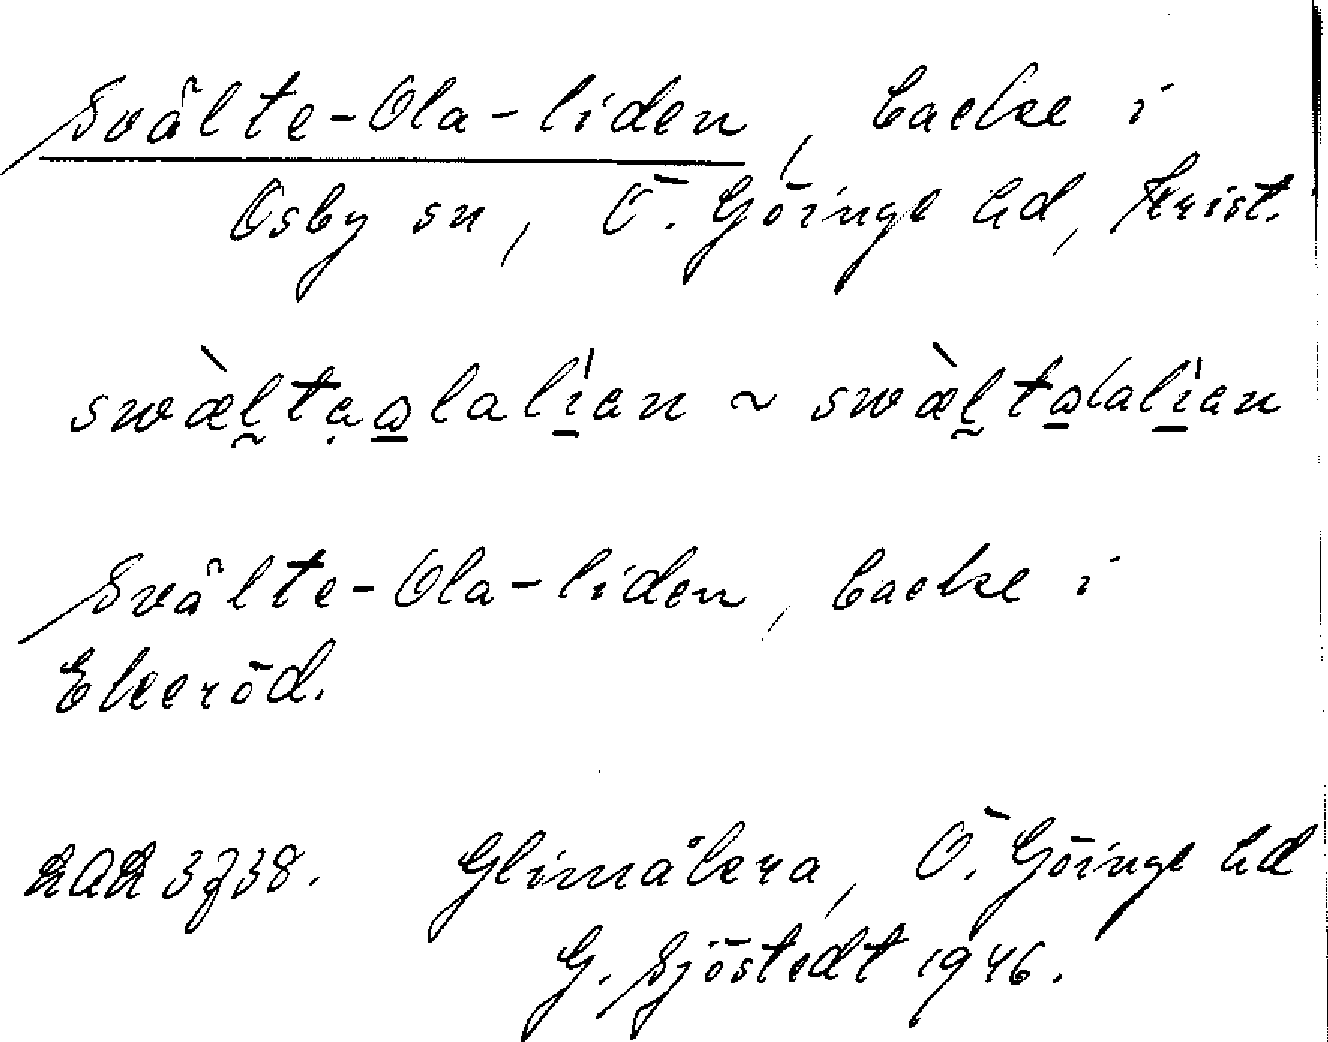 Svälte-Ola-liden, backe i
Osby sn, Ö. Göinge hd, Krist.
swæ̀l̰tạo̲lalí̲an ~ swæ̀l̰to̲lalì̲an
Svälte-Ola-liden, backe i
Ekeröd.
3738. Glimåkra, Ö. Göinge hd
G. Sjöstedt 1946.